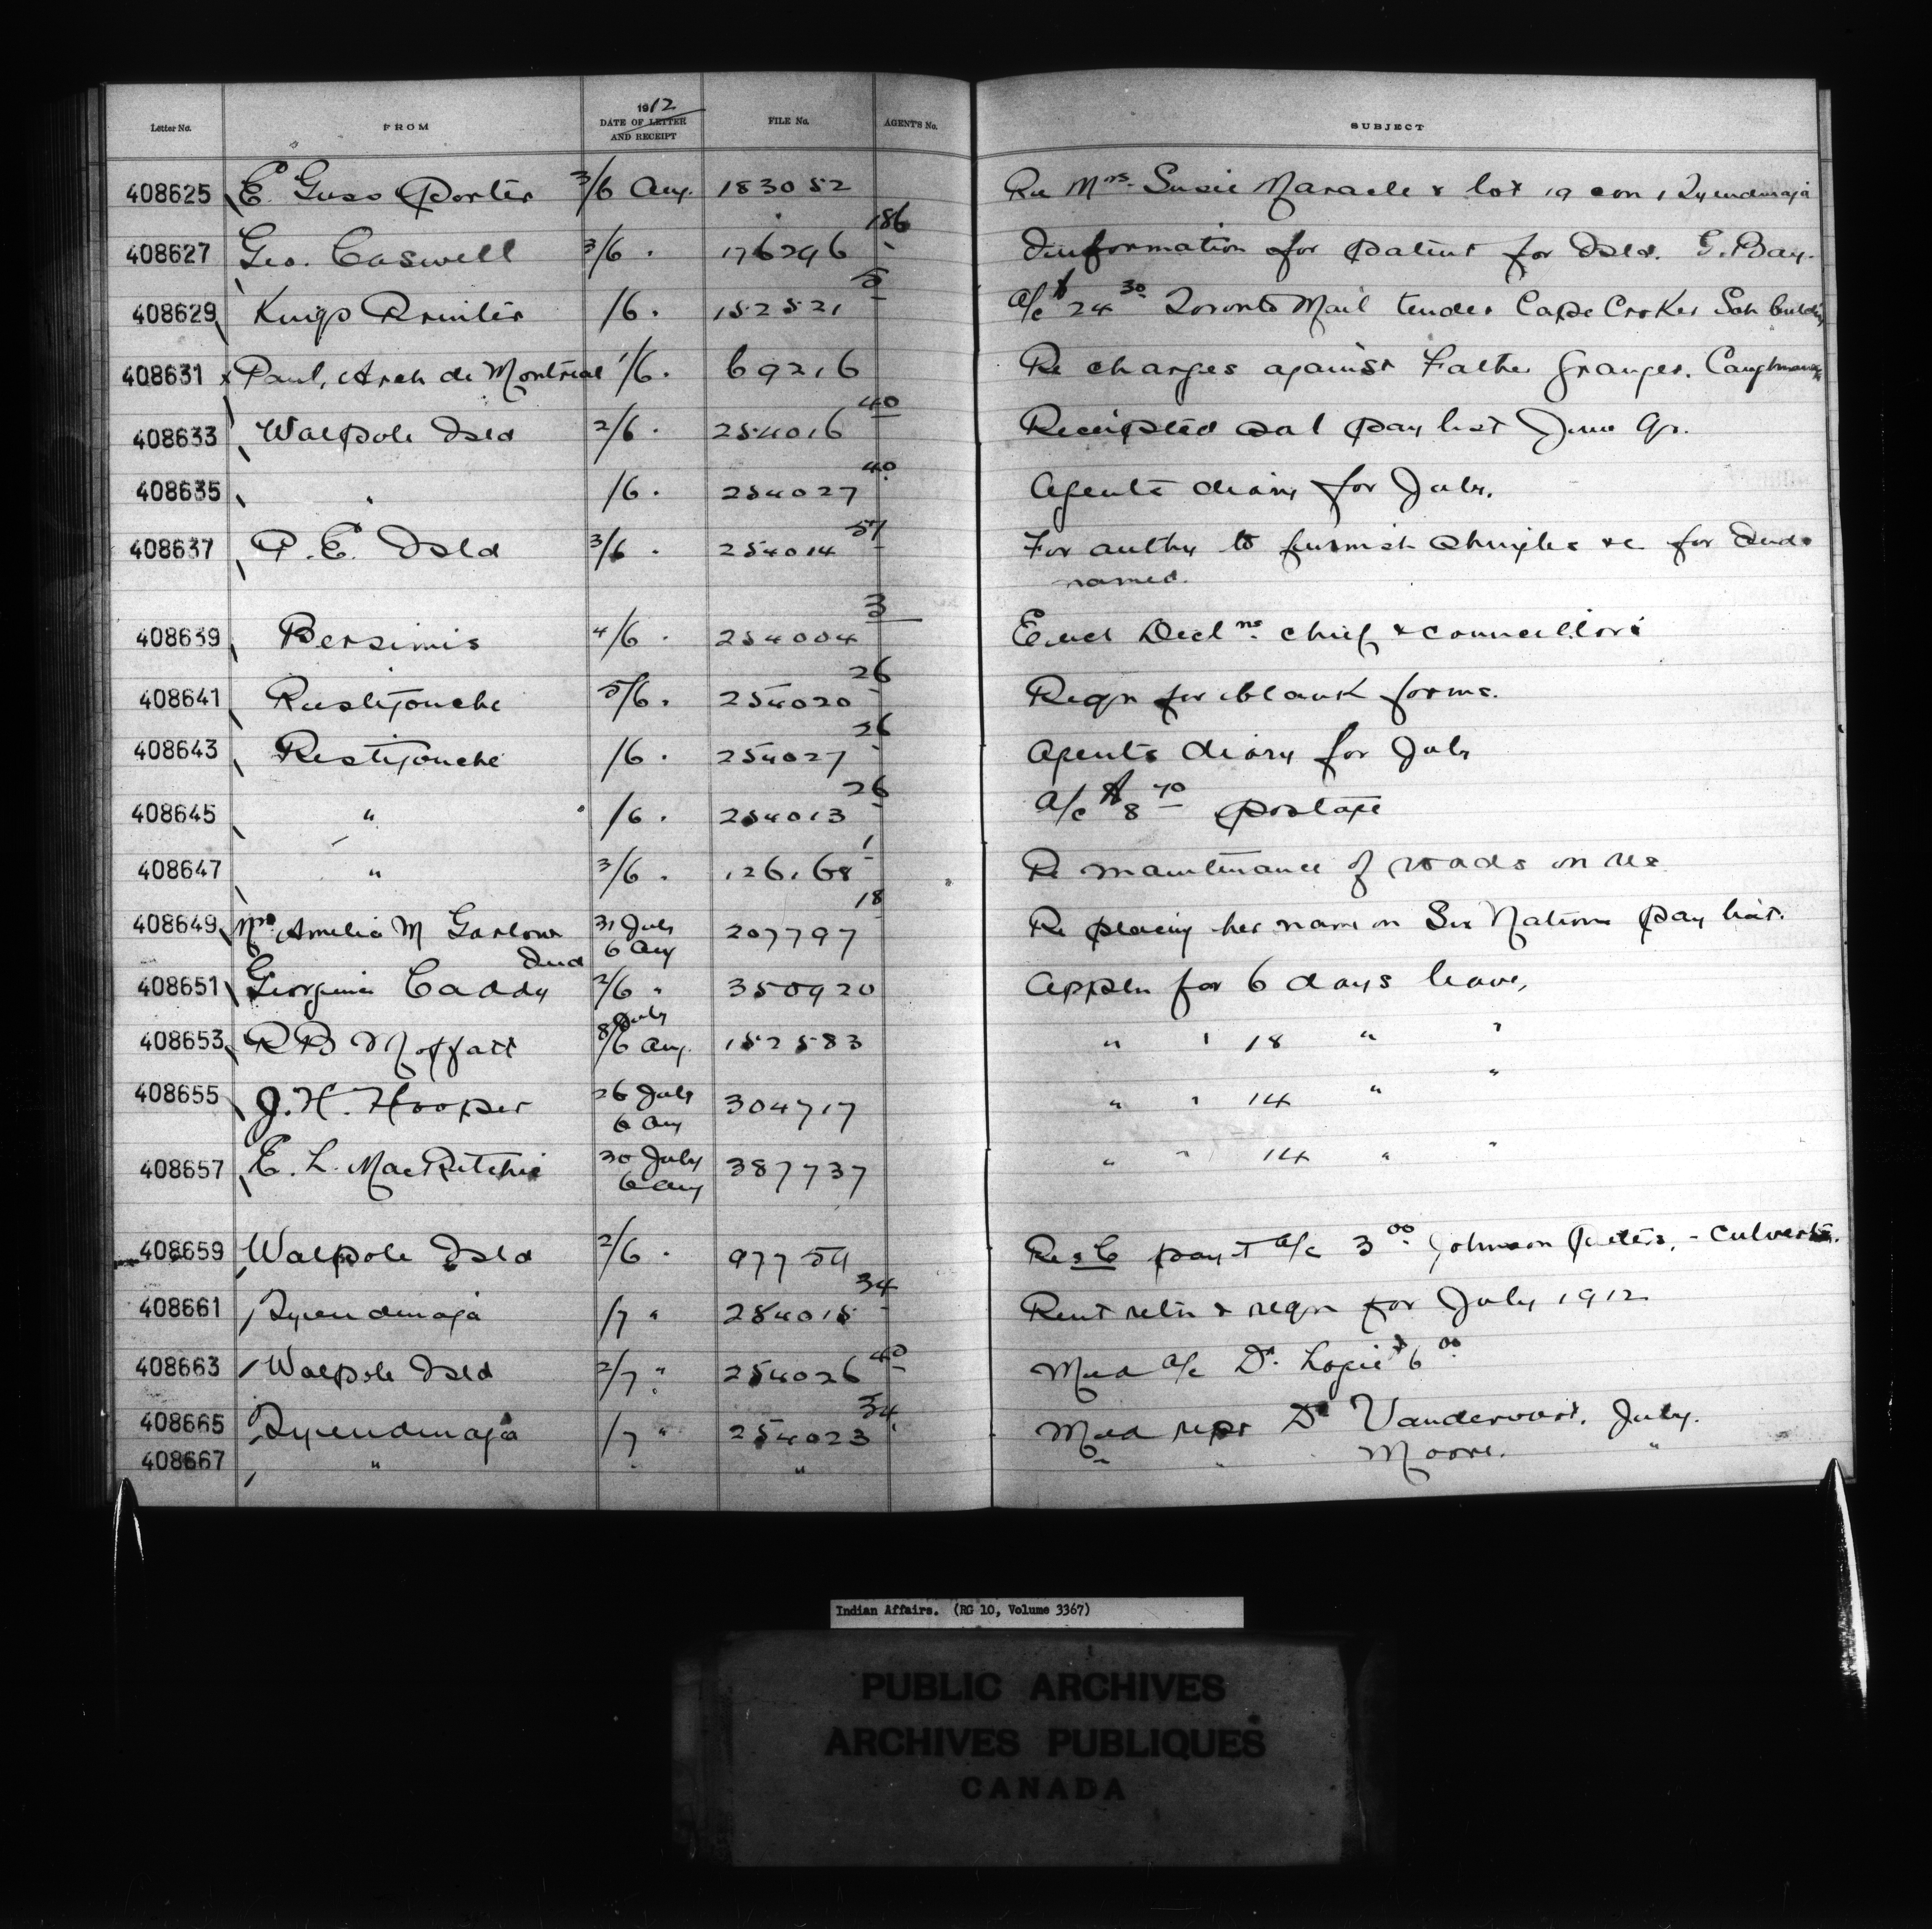 1912
Letter No. FROM DATE OF LETTER AND RECEIPT FILE No. AGENT'S No. SUBJECT
408625 E. Guss Porter 3/6 Aug. 183052 Re Mrs. Susie Maracle & lot 19 con 1 Tyendinaga
408627 Geo. Caswell 3/6 " 176296 186 Information for patent for Isld. G. Bay.
408629 Kings Printer /6 " 152521 5 A/c $24.30 Toronto Mail tender Cape Croker Sch building
408631 x Paul, Arch de Montréal 1/6 " 69216 Re charges against Father Granger. Caughnawaga
408633 Walpole Isld 2/6 " 254016 40 Receipted sal pay list June Qr.
408635 " /6 " 254027 40 Agents diary for July.
408637 P.E. Isld 3/6 " 254014 37 For authy to furnish shingles &c for Inds
named.
408639 Bersimis 4/6 " 254004 3 Encl Decl ns. chief & councillors
408641 Restigouche 5/6 " 254020 26 Reqn for blank forms.
408643 Restigouche /6 " 254027 26 Agents diary for July
408645 " /6 " 254013 26 A/c $8.70 postage
408647 " 3/6 " 126168 1 Re maintenance of roads on res
408649 Mrs. Amelia M Garlow 31 July 6 Aug 207797 18 Re placing her name on Six Nations pay list.
Ind
408651 Georgina Caddy 2/6 " 350920 Appln for 6 days leave,
408653 R B Moffatt 8 July /6 Aug. 152583 " " 18 " "
408655 J. H. Hooper 26 July 6 Aug 304717 " " 14 " "
408657 E. L. MacRitchie 30 July 6 Aug 387737 " " 14 " "
408659 Walpole Isld 2/6 " 97754 pay-t a/c 3.00 Johnson Peters, - culverts.
408661 Tyendinaga /7 " 254018 34 Rent retn & reqn for July 1912
408663 Walpole Isld 2/7 " 254026 40 Med a/c Dr. Logie $6.00
408665 Tyendinaga /7 " 254023 34 Med rept Dr Vandervoort, July.
408667 " " " " " Moore. "
Indian Affairs. (RG 10, Volume 3367)
PUBLIC ARCHIVES
ARCHIVES PUBLIQUES
CANADA